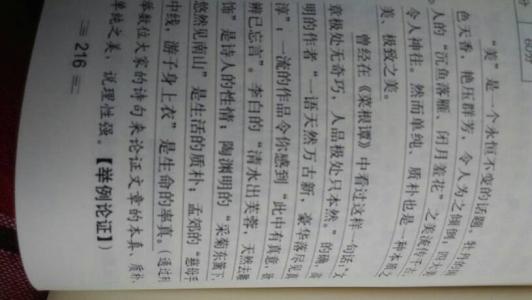 “美”是一个永恒不变的话题。牡丹的
色天香，艳压群芳，令人为之倾倒，四大
人的“沉鱼落雁、闭月羞花”之美流传千古
令人神往。然而单纯、质朴也是一种本真之
美、极致之美。
曾经在《菜根谭》中看过这样一句话：“文
章极处无奇巧，人品极处只本然。”的确，
明的作者“一语天然万古新，豪华落尽见真
淳”，一流的作品令你感到“此中有真意，欲
辨已忘言”。李白的“清水出芙蓉，天然去雕
饰”是诗人的性情；陶渊明的“采菊东篱下，
悠然见南山”是生活的质朴；孟郊的“慈母手
中线，游子身上衣”是生命的率真。（通过列
举数位大家的诗句来论证文章的本真、质朴、
单纯之美，说理性强。【举例论证】）
216